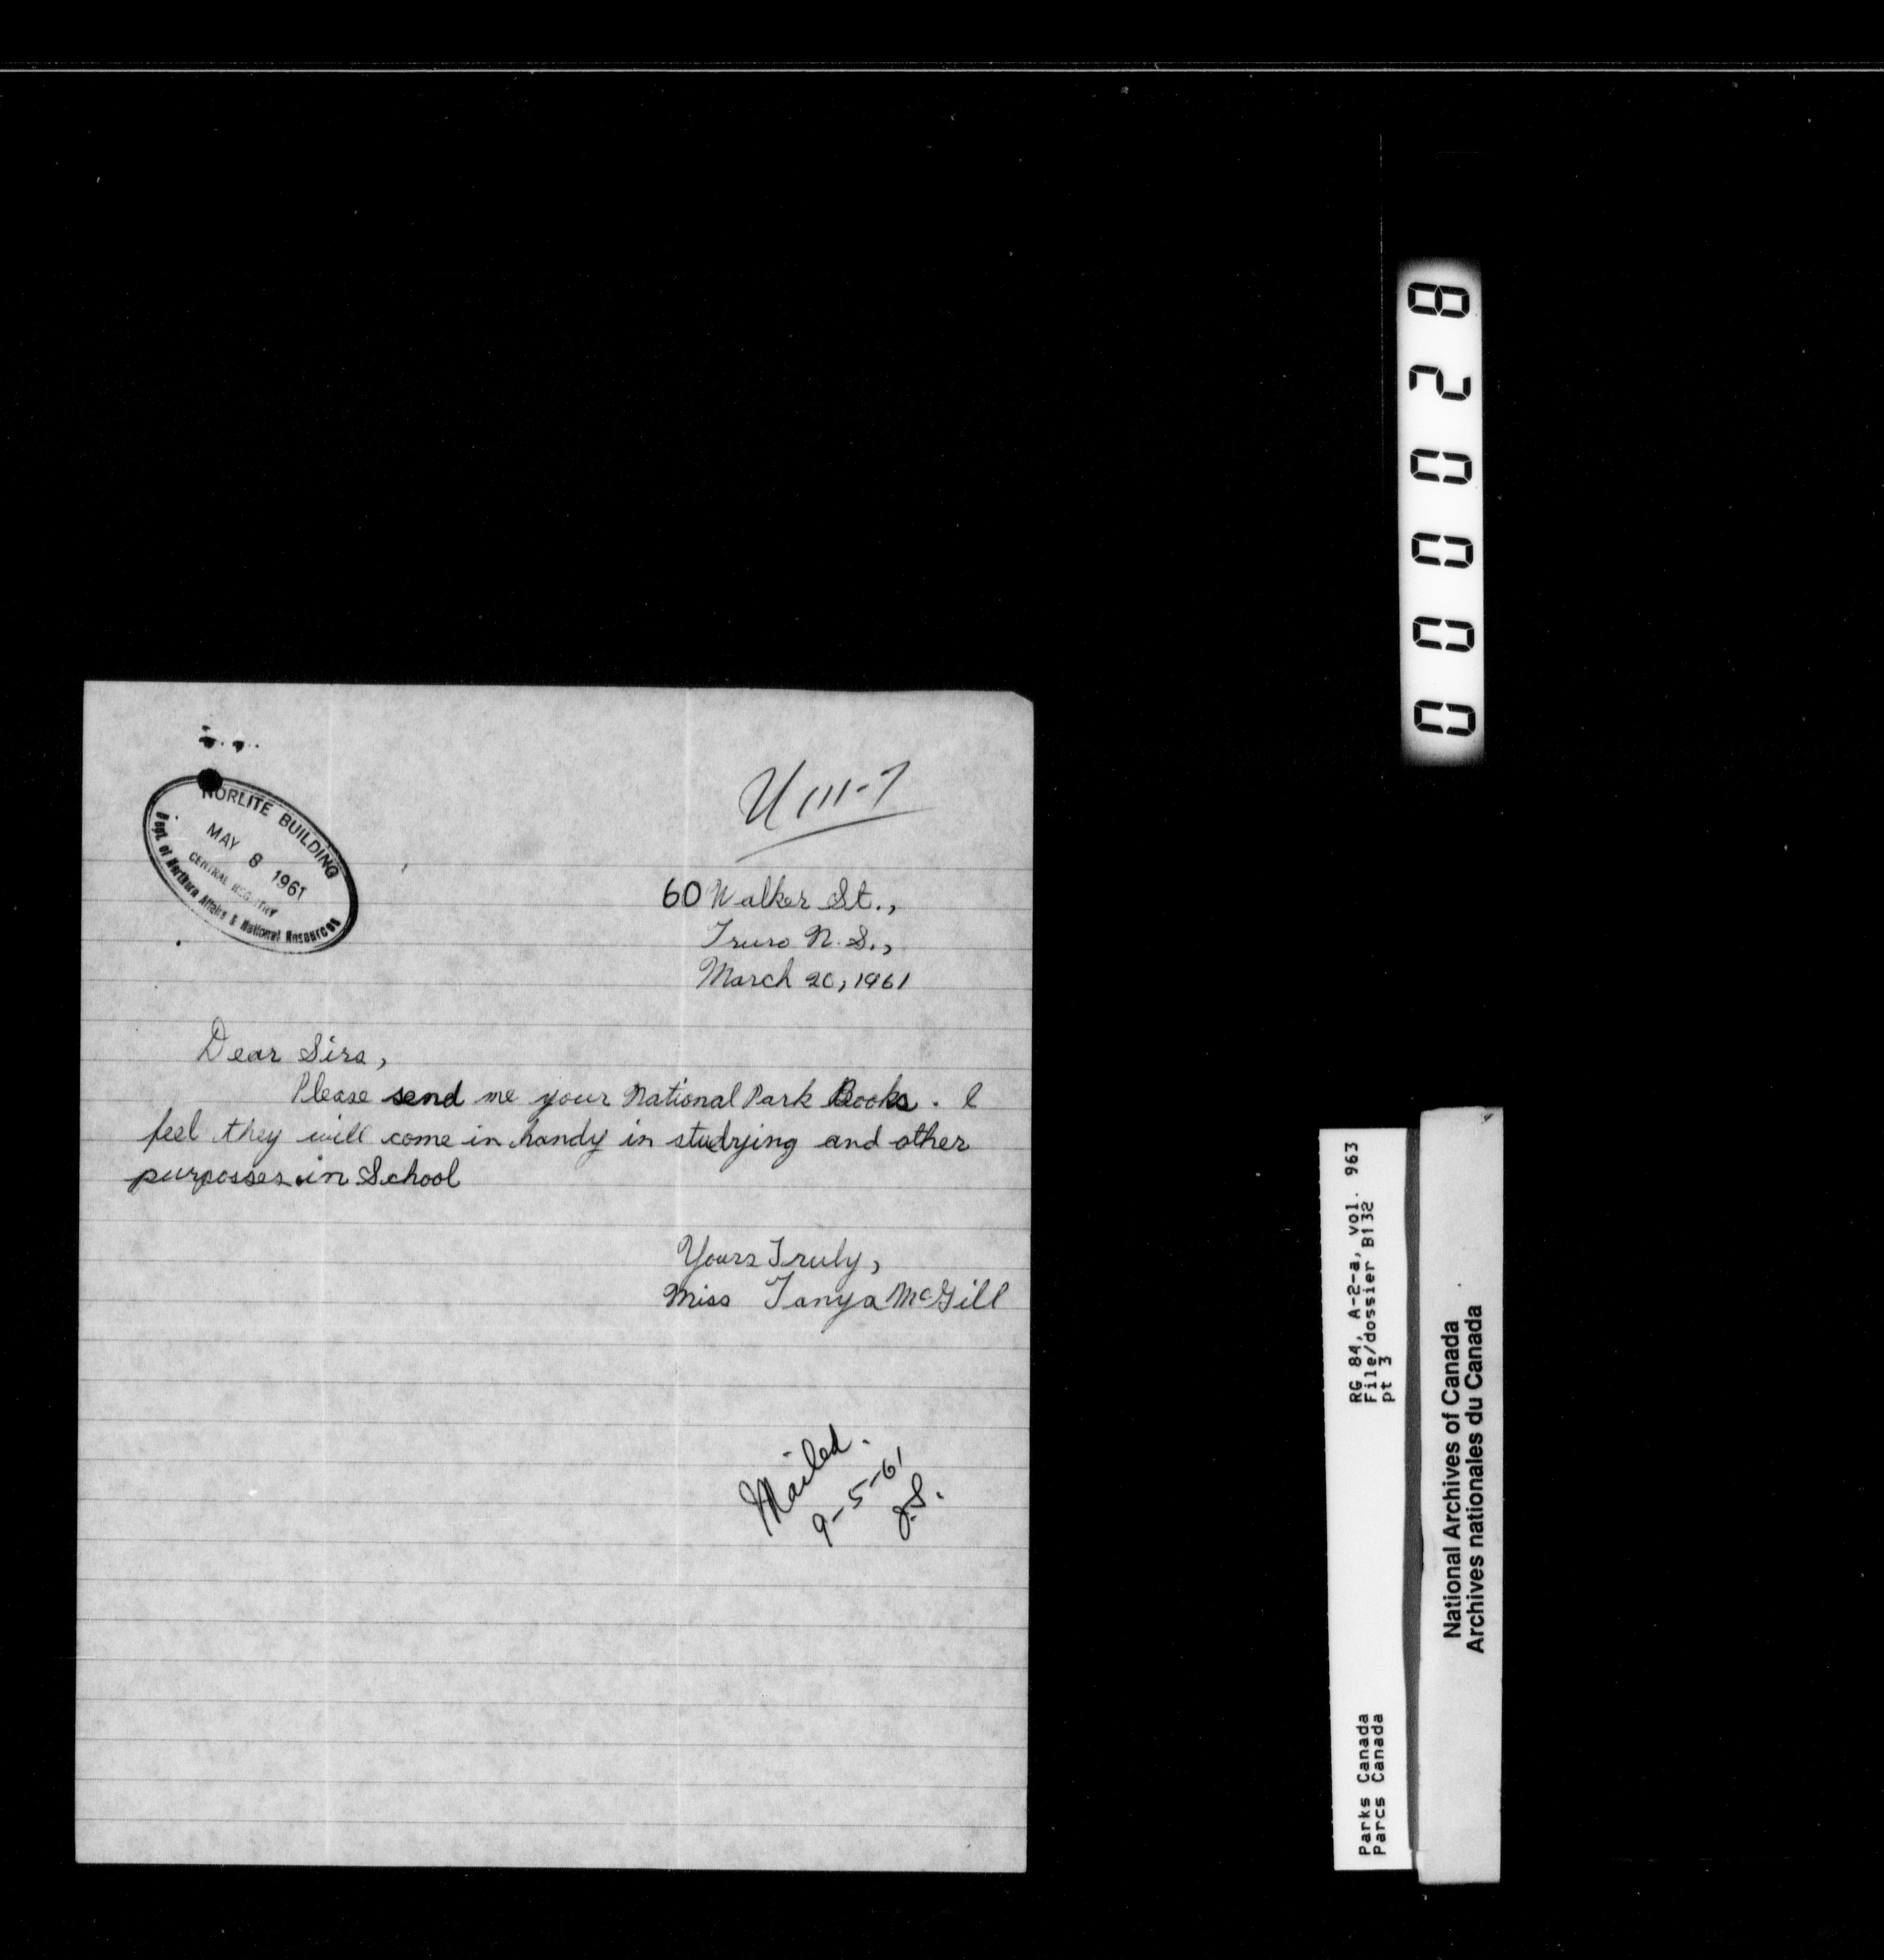 NORLITE BUILDING
MAY 8 1961
CENTRAL REGISTRY
Dept. of Northern Affairs & National Resources
U 111-7
60 Walker St.,
Truro N. S.,
March 20, 1961
Dear Sirs,
Please send me your National Park Books. I
feel they will come in handy in studying and other
purposses in School
Yours Truly,
Miss Tanya McGill
Mailed.
9-5-61
J.S.
000028
RG 84, A-2-a, vol. 963
File/dossier B132
pt 3
Parks Canada
Parcs Canada
National Archives of Canada
Archives nationales du Canada